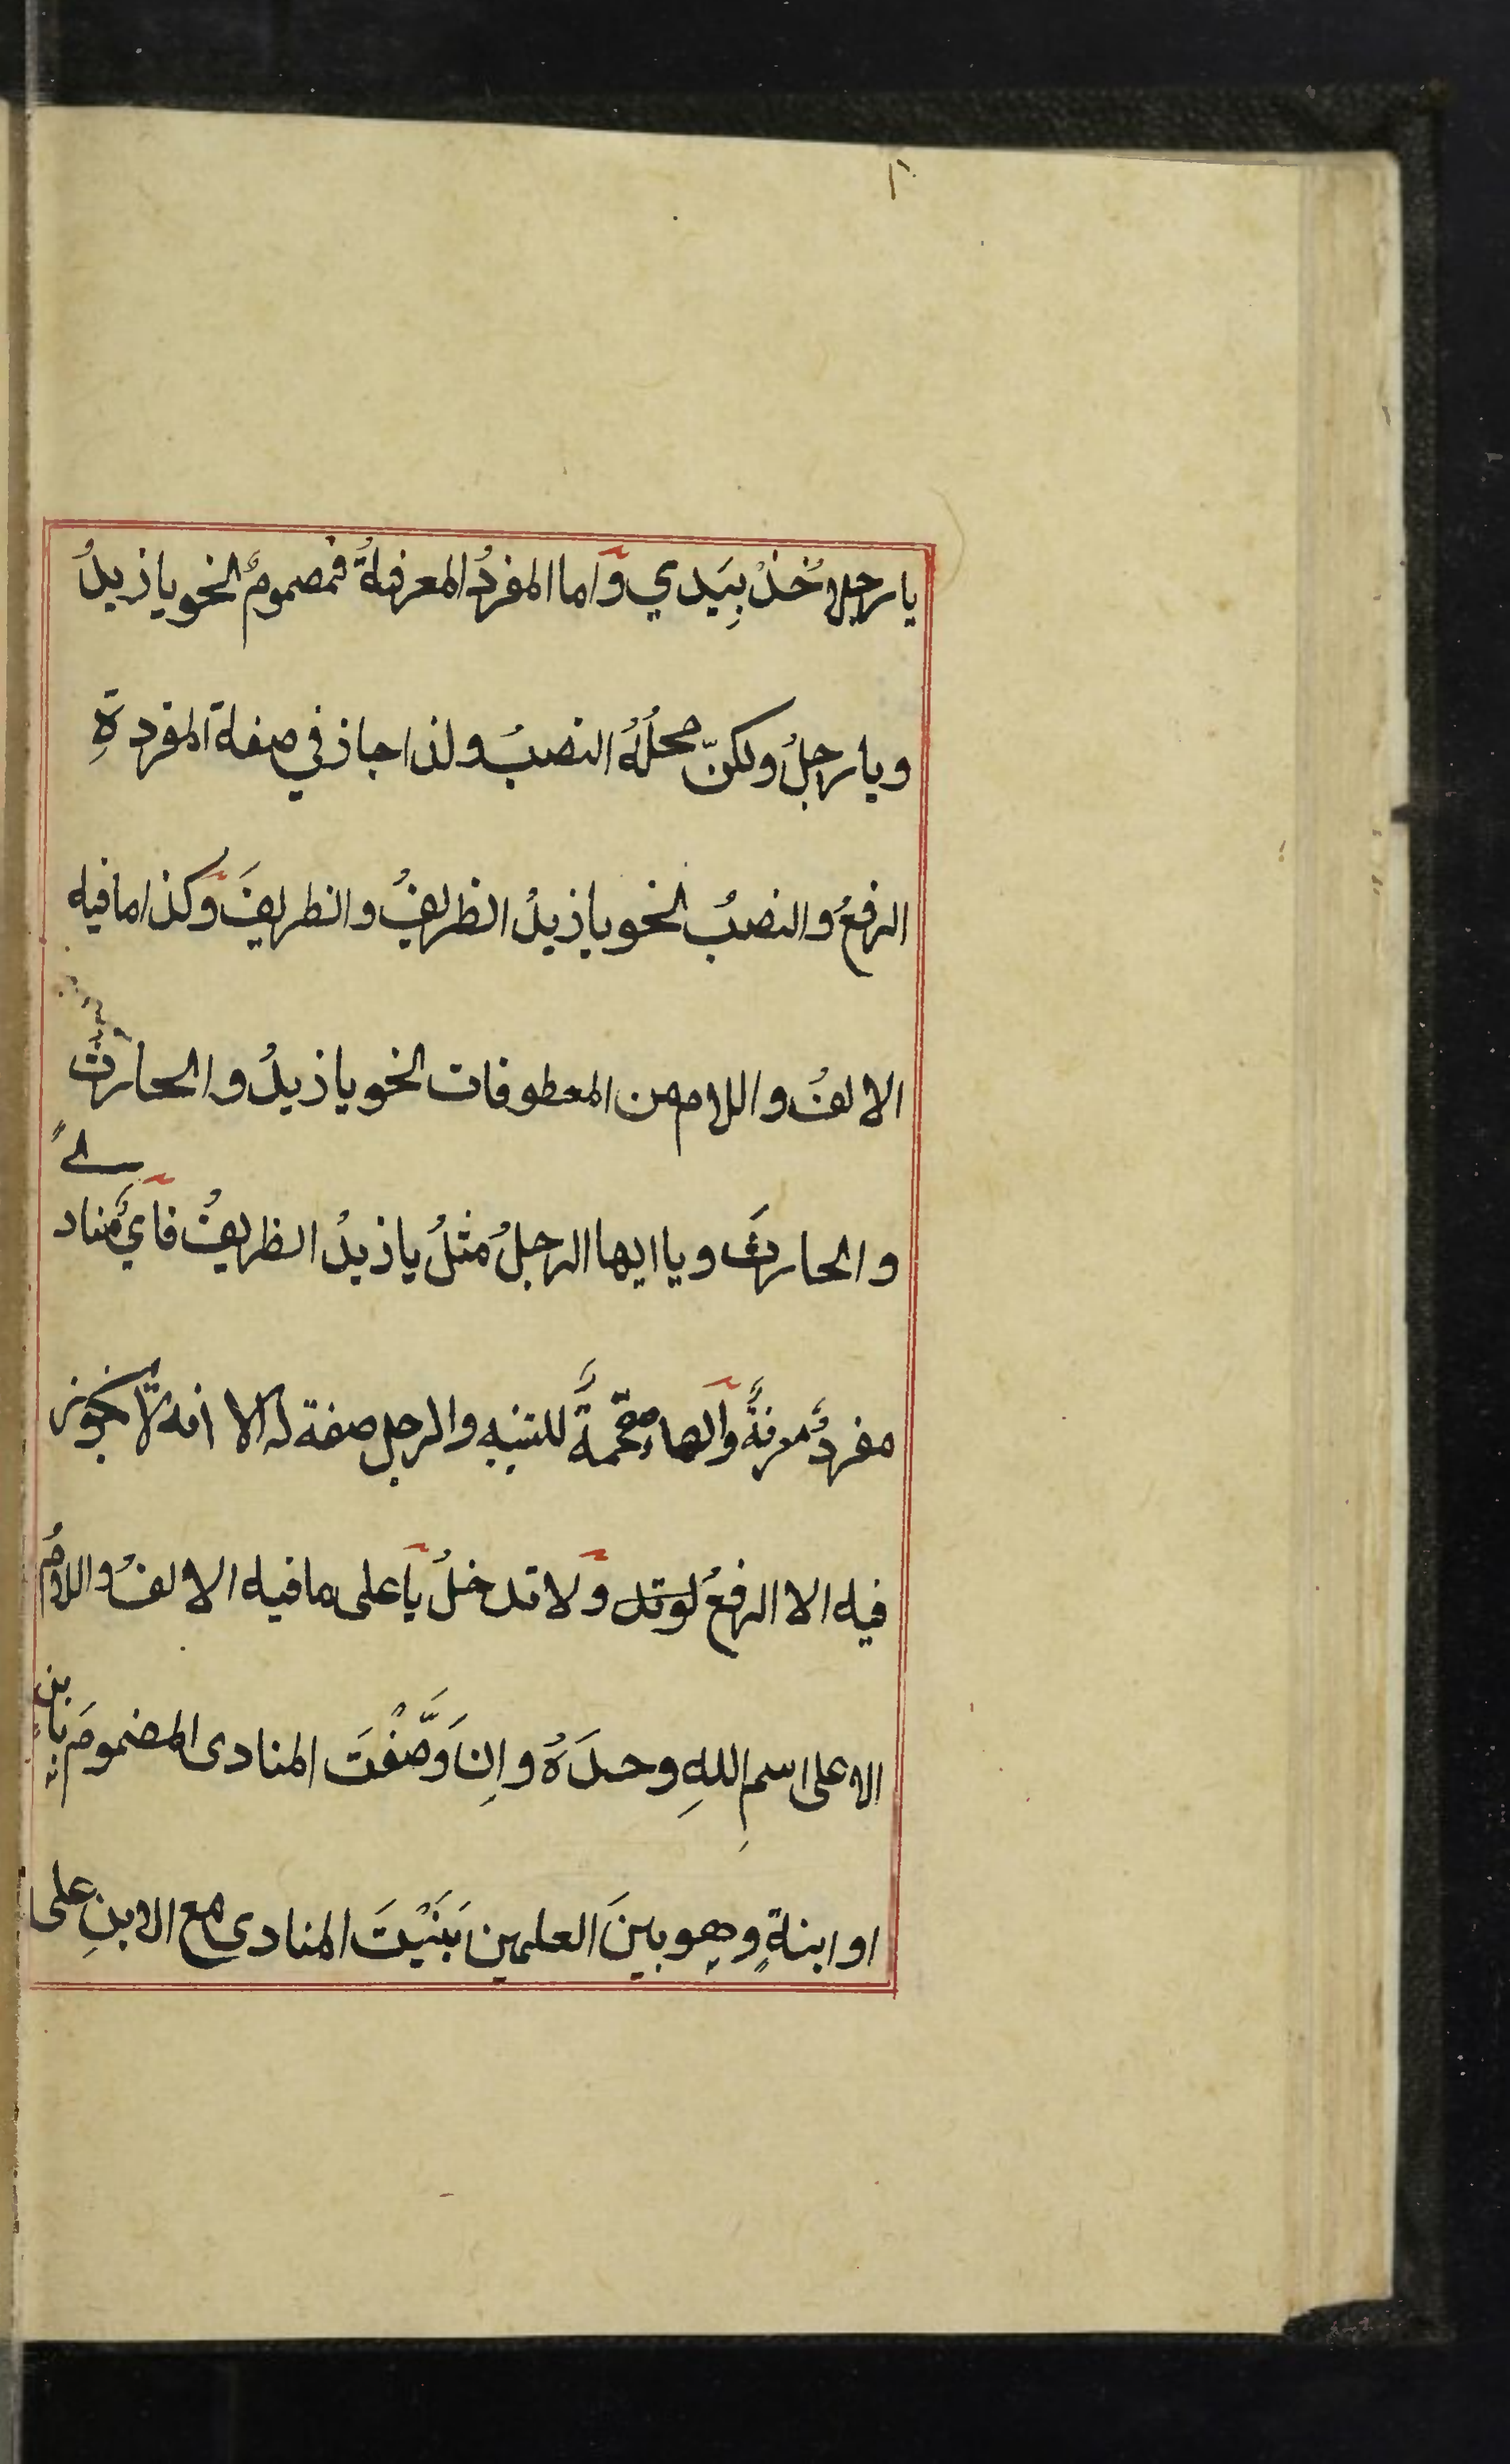 يا رجلا خُذْ بِيَدي وَاما المفردُ المعرفةُ فمضمومٌ نحو يا زيدُ
ويا رجلُ ولكنّ محلُهُ النصبُ ولذا جاز في صفة المفردةِ
الرفعُ والنصبُ نحو يا زيدُ الظريفُ والظريفَ وكذا ما فيه
الالفُ واللام من المعطوفات نحو يا زيدُ والحارثُ
والحارثَ ويا ايها الرجلُ مثلُ يا زيدُ الظريفُ فأيٌّ منادىً
مفردٌ معرفةٌ والهاء مقحمةٌ للتنبيه والرجل صفة له الا انه لا يجوز
فيه الا الرفعُ ولا تدخلُ يا على ما فيه الالفُ واللامُ
الا على اسمِ اللهِ وحدَهُ وانِ وَصَّفْتَ المنادى المضمومَ بابن
او ابنةٍ وهو بينَ العلمين بَنَيْتَ المنادى مع الابنِ على